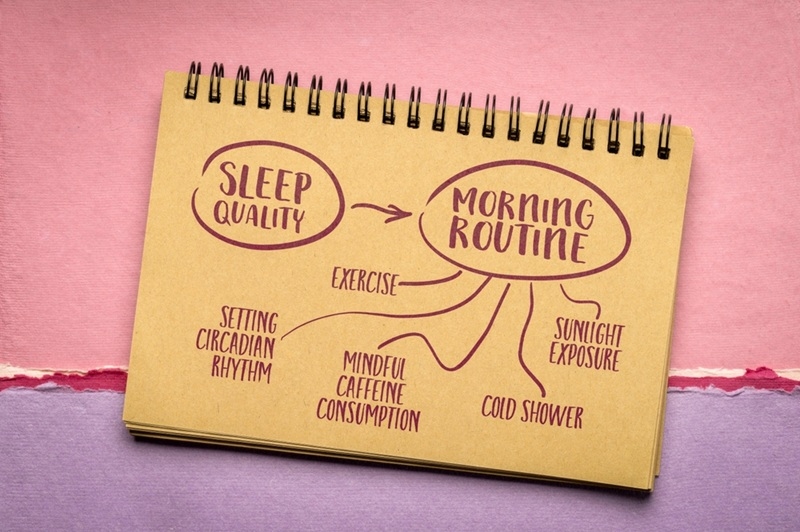 SLEEP
QUALITY
MORNING
ROUTINE
EXERCISE
SETTING
CIRCADIAN
RHYTHM
MINDFUL
CAFFEINE
CONSUMPTION
COLD SHOWER
SUNLIGHT
EXPOSURE